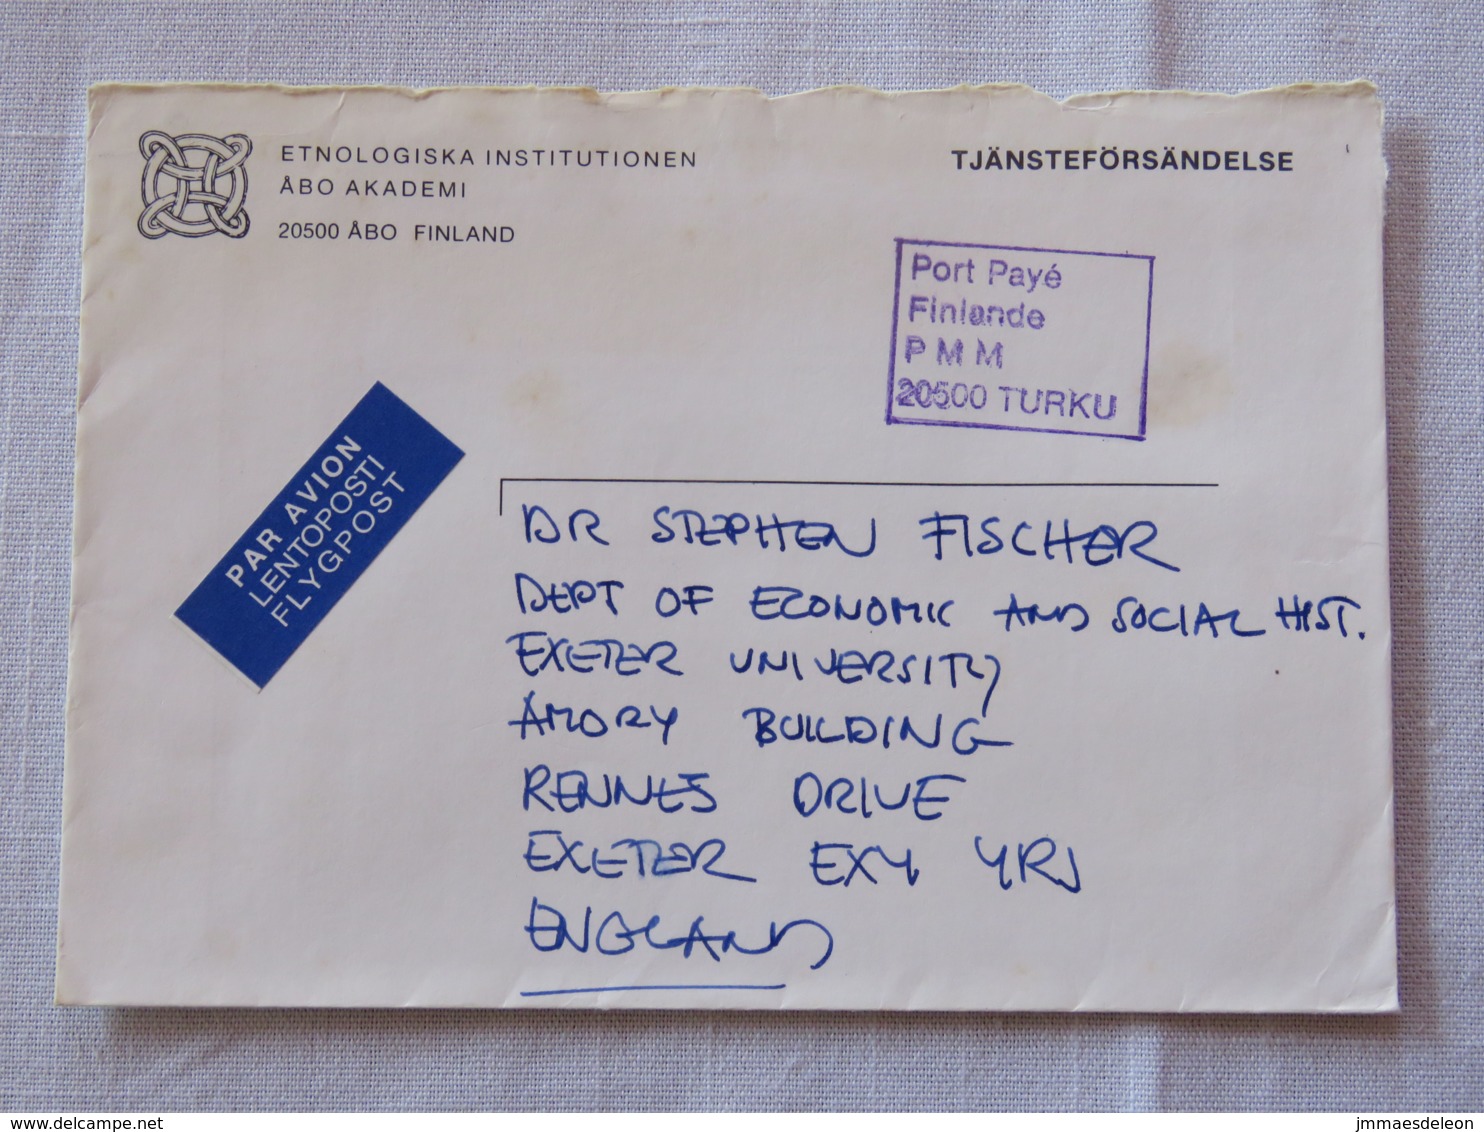 ETNOLOGISKA INSTITUTIONEN
ÅBO AKADEMI
20500 ÅBO FINLAND
TJÄNSTEFÖRSÄNDELSE
Port Payé
Finlande
P M M
20500 TURKU
PAR AVION
LENTOPOSTI
FLYGPOST
DR STEPHEN FISCHER
DEPT OF ECONOMIC AND SOCIAL HIST.
EXETER UNIVERSITY
AMORY BUILDING
RENNES DRIVE
EXETER EX4 4RJ
ENGLAND
www.delcampe.net
jmmaesdeleon